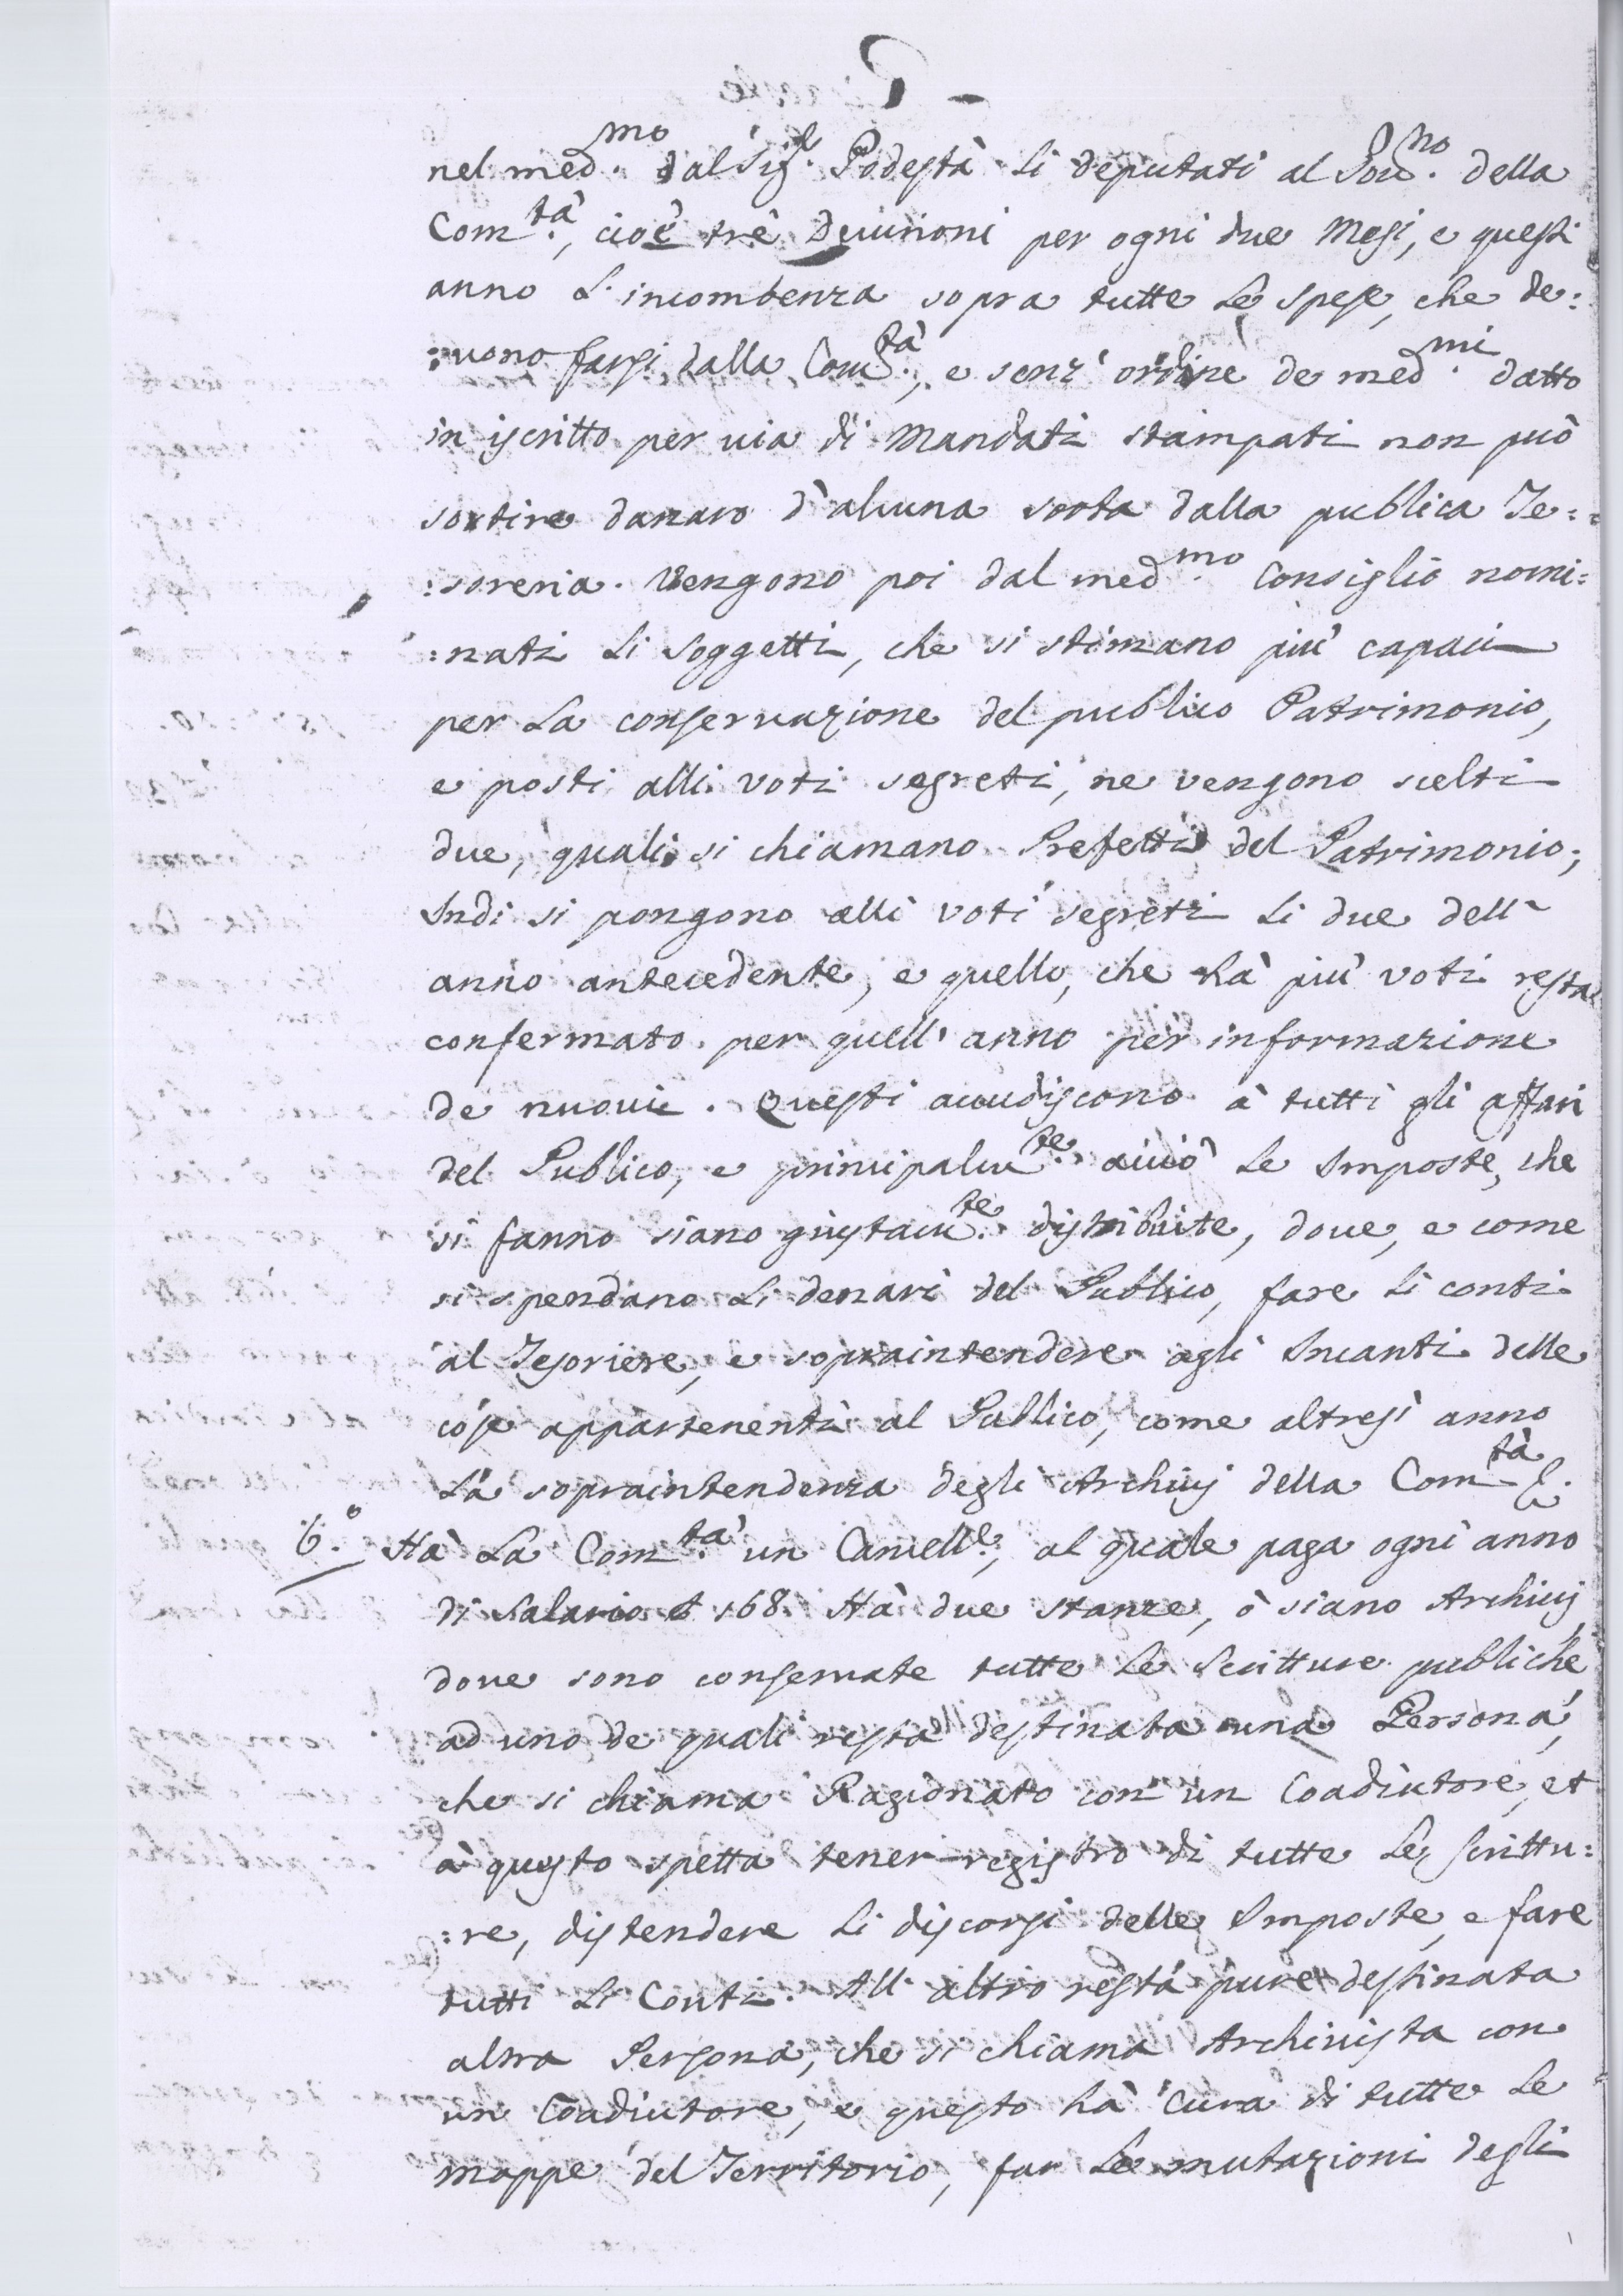 nel med.mo dal Sig.r Podestà li deputati al Gov.no della
Com.tà, cioè trè Decurioni per ogni due Mesi, e questi
anno l'incombenza sopra tutte le spese, che de:
:uono farsi dalla Com.tà, e senz' ordine de med.mi datto
in iscritto per uia di Mandati stampati non può
sortire danaro d'alcuna sorta dalla publica Te:
:soreria. Vengono poi dal med.mo Consiglio nomi:
:nati li soggetti, che si stimano più capaci
per la conseruazione del publico Patrimonio,
e posti alli voti segreti, ne vengono scelti
due, quali si chiamano Prefetti del Patrimonio;
Indi si pongono alli voti segreti li due dell'
anno antecedente, e quello, che hà più voti resta
confermato per quell' anno per informazione
de nuoui. Questi accudiscono à tutti gli affari
del Publico, e principalm.te acciò le Imposte, che
si fanno siano giustam.te distribuite, doue, e come
si spendano li denari del Publico, fare li conti
al Tesoriere, e sopraintendere agli Incanti delle
cose appartenenti al Publico, come altresì anno
la sopraintendenza degli Archiuij della Com.tà
6.° Hà la Com.tà un Cancell.e, al quale paga ogni anno
di salario 168. Hà due stanze, ò siano Archiuij,
doue sono conseruate tutte le Scritture publiche,
ad uno de quali resta destinata una Persona,
che si chiama Ragionato con un Coadiutore, et
à questo spetta tener registro di tutte le Scrittu:
:re, distendere li discorsi delle Imposte, e fare
tutti li Conti. All' altro resta pure destinata
altra Persona, che si chiama Archiuista con
un Coadiutore, e questo hà Cura di tutte le
mappe del Territorio, far le mutazioni degli